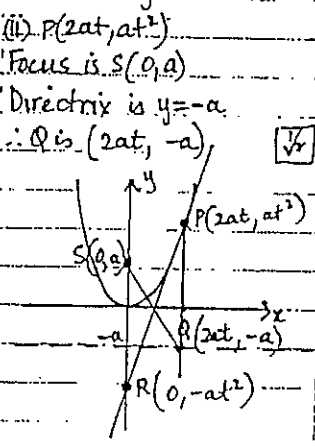 (ii) P(2at, at²)
Focus is S(0,a)
Directrix is y=-a
∴ Q is (2at, -a)
y
P(2at, at²)
S(0,a)
x
-a
Q(2at, -a)
R(0, -at²)